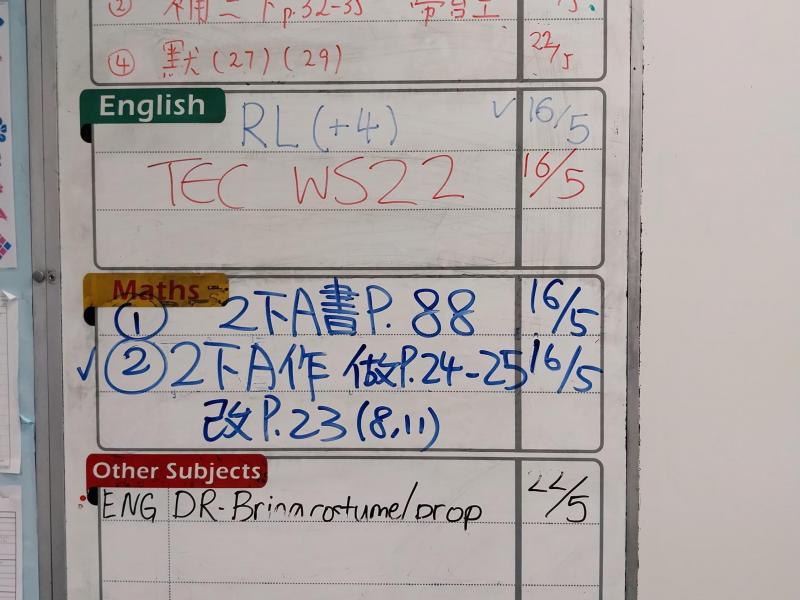 ② 補二下p.32-33 常台工
④ 默(27)(29) 22/5
English
RL(+4) ✓ 16/5
TEC WS22 16/5
Maths
① 2下A書P.88 16/5
✓ ② 2下A作 做P.24-25 16/5
改P.23(8,11)
Other Subjects
ENG DR-Bring costume/prop 22/5